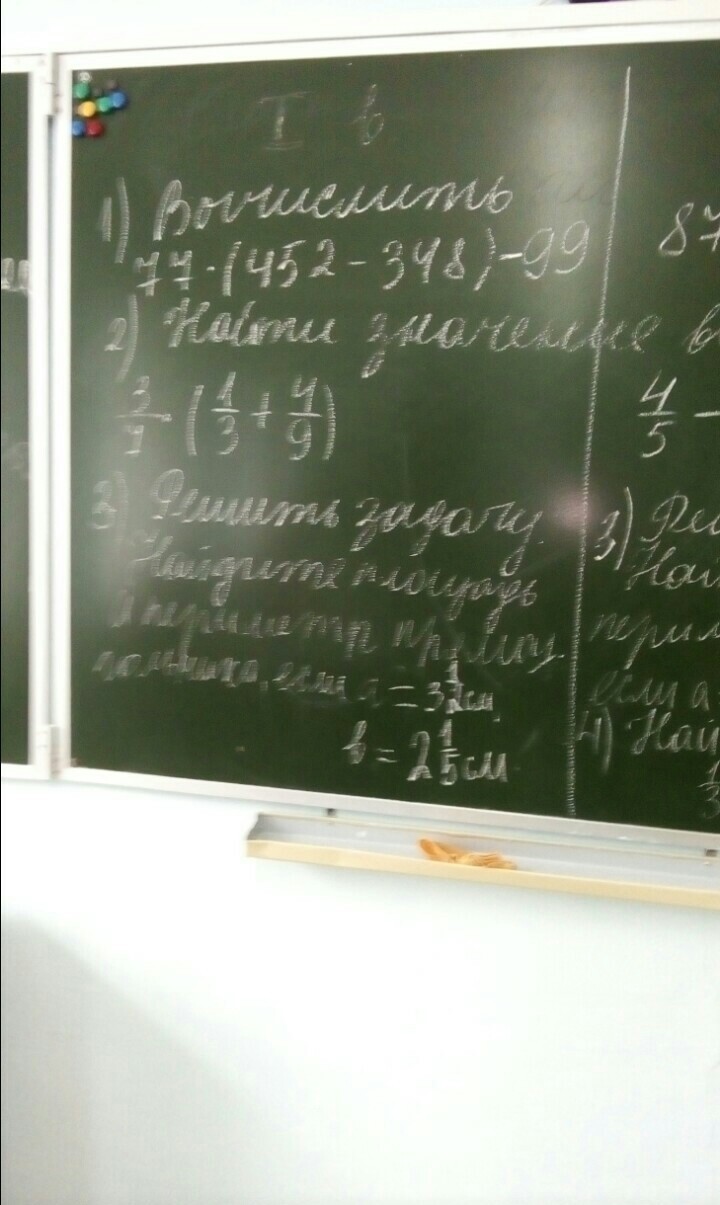 I в
1) Вычислить
77·(452-348)-99
2) Найти значение в
3/7 · (1/3 + 4/9)
3) Решить задачу.
Найдите площадь
и периметр прямоу
гольника, если a = 3 1/2 см,
b = 2 1/5 см
87
4/5 -
3) Ре
Най
перим
если a
4) Най
1/3